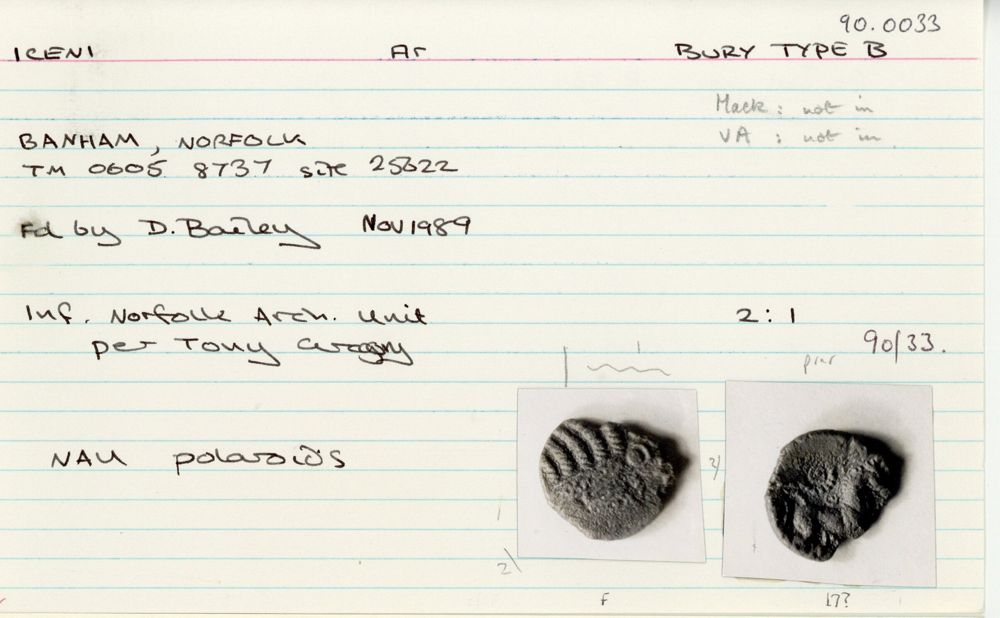 90.0033
ICENI Ar BURY TYPE B
Mack : not in
VA : not in
BANHAM, NORFOLK
TM 0605 8737 site 25622
Fd by D. Bailey Nov 1989
Inf. Norfolk Arch. Unit 2:1
per Tony Gregory 90/33.
NAU polaroids
f